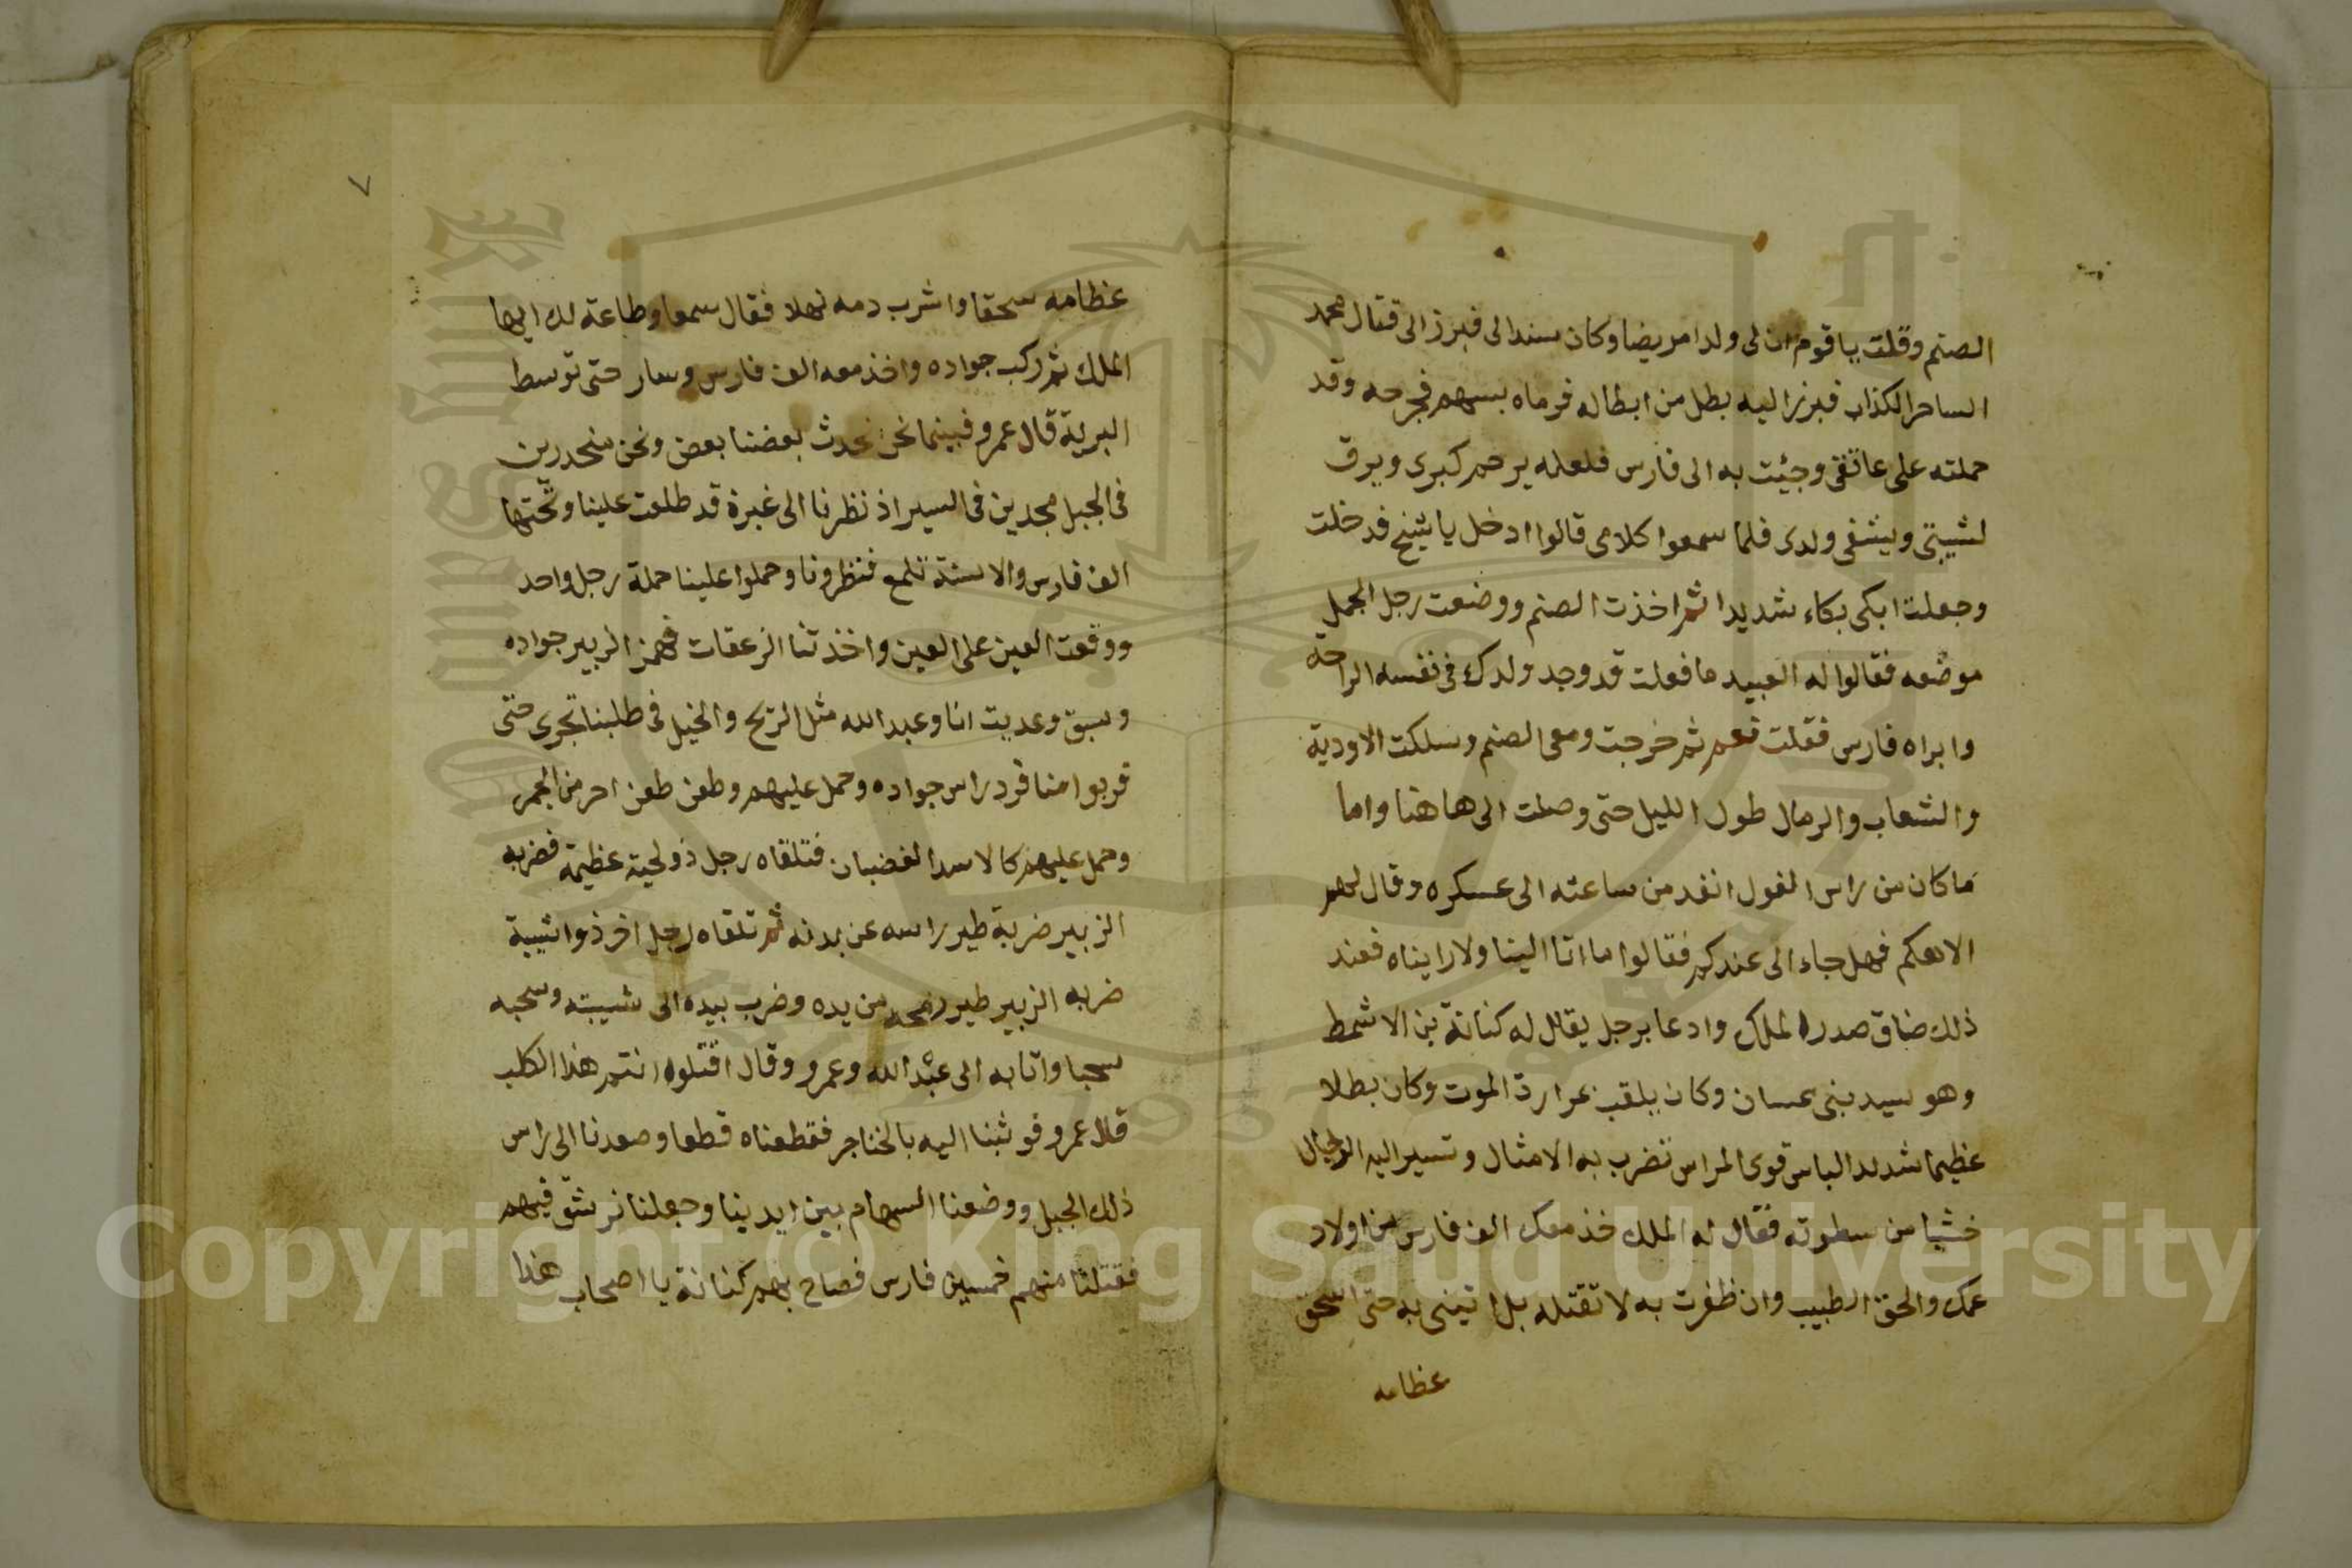 الصنم وقلت يا قوم ان لى ولدا مريضا وكان سندا لى فبرز الى قتال محمد
الساحر الكذاب فبرز اليه بطل من ابطاله فرماه بسهم فجرحه وقد
حملته على عاتقى وجيئت به الى فارس فلعله يرحم كبرى ويرق
لشيبتى ويشفى ولدى فلما سمعوا كلامى قالوا ادخل يا شيخ فدخلت
وجعلت ابكى بكاء شديدا ثم اخذت الصنم ووضعت رجل الجمل
موضعه فقالوا له العبيد ما فعلت قد وجد ولدك فى نفسه الراحة
وابراه فارس فقلت نعم ثم خرجت ومعى الصنم وسلكت الاودية
والشعاب والرمال طول الليل حتى وصلت الى هاهنا واما
ما كان من راس الغول انفد من ساعته الى عسكره وقال لهم
الاهكم فهل جاء الى عندكم فقالوا ما اتا الينا ولا رايناه فعند
ذلك ضاق صدر الملك وادعا برجل يقال له كنانة بن الاشمط
وهو سيد بنى عسان وكان يلقب عرارة الموت وكان بطلا
عظيما شديد الباس قوى المراس تضرب به الامثال وتسير اليه الرجال
خشيا من سطوته فقال له الملك خذ معك الف فارس من اولاد
عمك والحق الطبيب وان ظفرت به لا تقتله بل اتينى به حتى اسحق
عظامه
٧
عظامه سحقا واشرب دمه نهلا فقال سمعا وطاعة لك ايها
الملك ثم ركب جواده واخذ معه الف فارس وسار حتى توسط
البرية قال عمرو فبينما نحن نحدث بعضنا بعض ونحن منحدرين
فى الجبل مجدين فى السير اذ نظرنا الى غبرة قد طلعت علينا وتحتها
الف فارس والاسنة تلمع فنظرونا وحملوا علينا حملة رجل واحد
ووقعت العين على العين واخذتنا الزعقات فهمز الزبير جواده
وسبق وعديت انا وعبد الله مثل الريح والخيل فى طلبنا تجرى حتى
قربوا منا فرد راس جواده وحمل عليهم وطعن طعن احر من الجمر
وحمل عليهم كالاسد الغضبان فتلقاه رجل ذو لحية عظيمة فضربه
الزبير ضربة طير راسه عن بدنه ثم تلقاه رجل اخر ذوا شيبة
ضربه الزبير طير رمحه من يده وضرب بيده الى شيبته وسحبه
سحبا واتا به الى عبد الله وعمرو وقال اقتلوه انتم هذا الكلب
قال عمرو فوثبنا اليه بالخناجر فقطعناه قطعا وصعدنا الى راس
ذلك الجبل ووضعنا السهام بين ايدينا وجعلنا نرشق فيهم
فقتلنا منهم خمسين فارس فصاح بهم كنانة يا اصحاب هذا
Copyright © King Saud University
1957